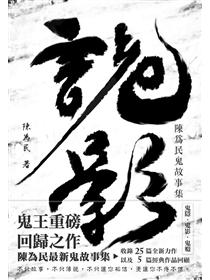 詭影
陳為民鬼故事集
陳為民 著
鬼王重磅
回歸之作
陳為民最新鬼故事集
收錄25篇全新力作
以及5篇經典作品回顧
不只故事，不只傳說，不只讓你相信，更讓你不得不信